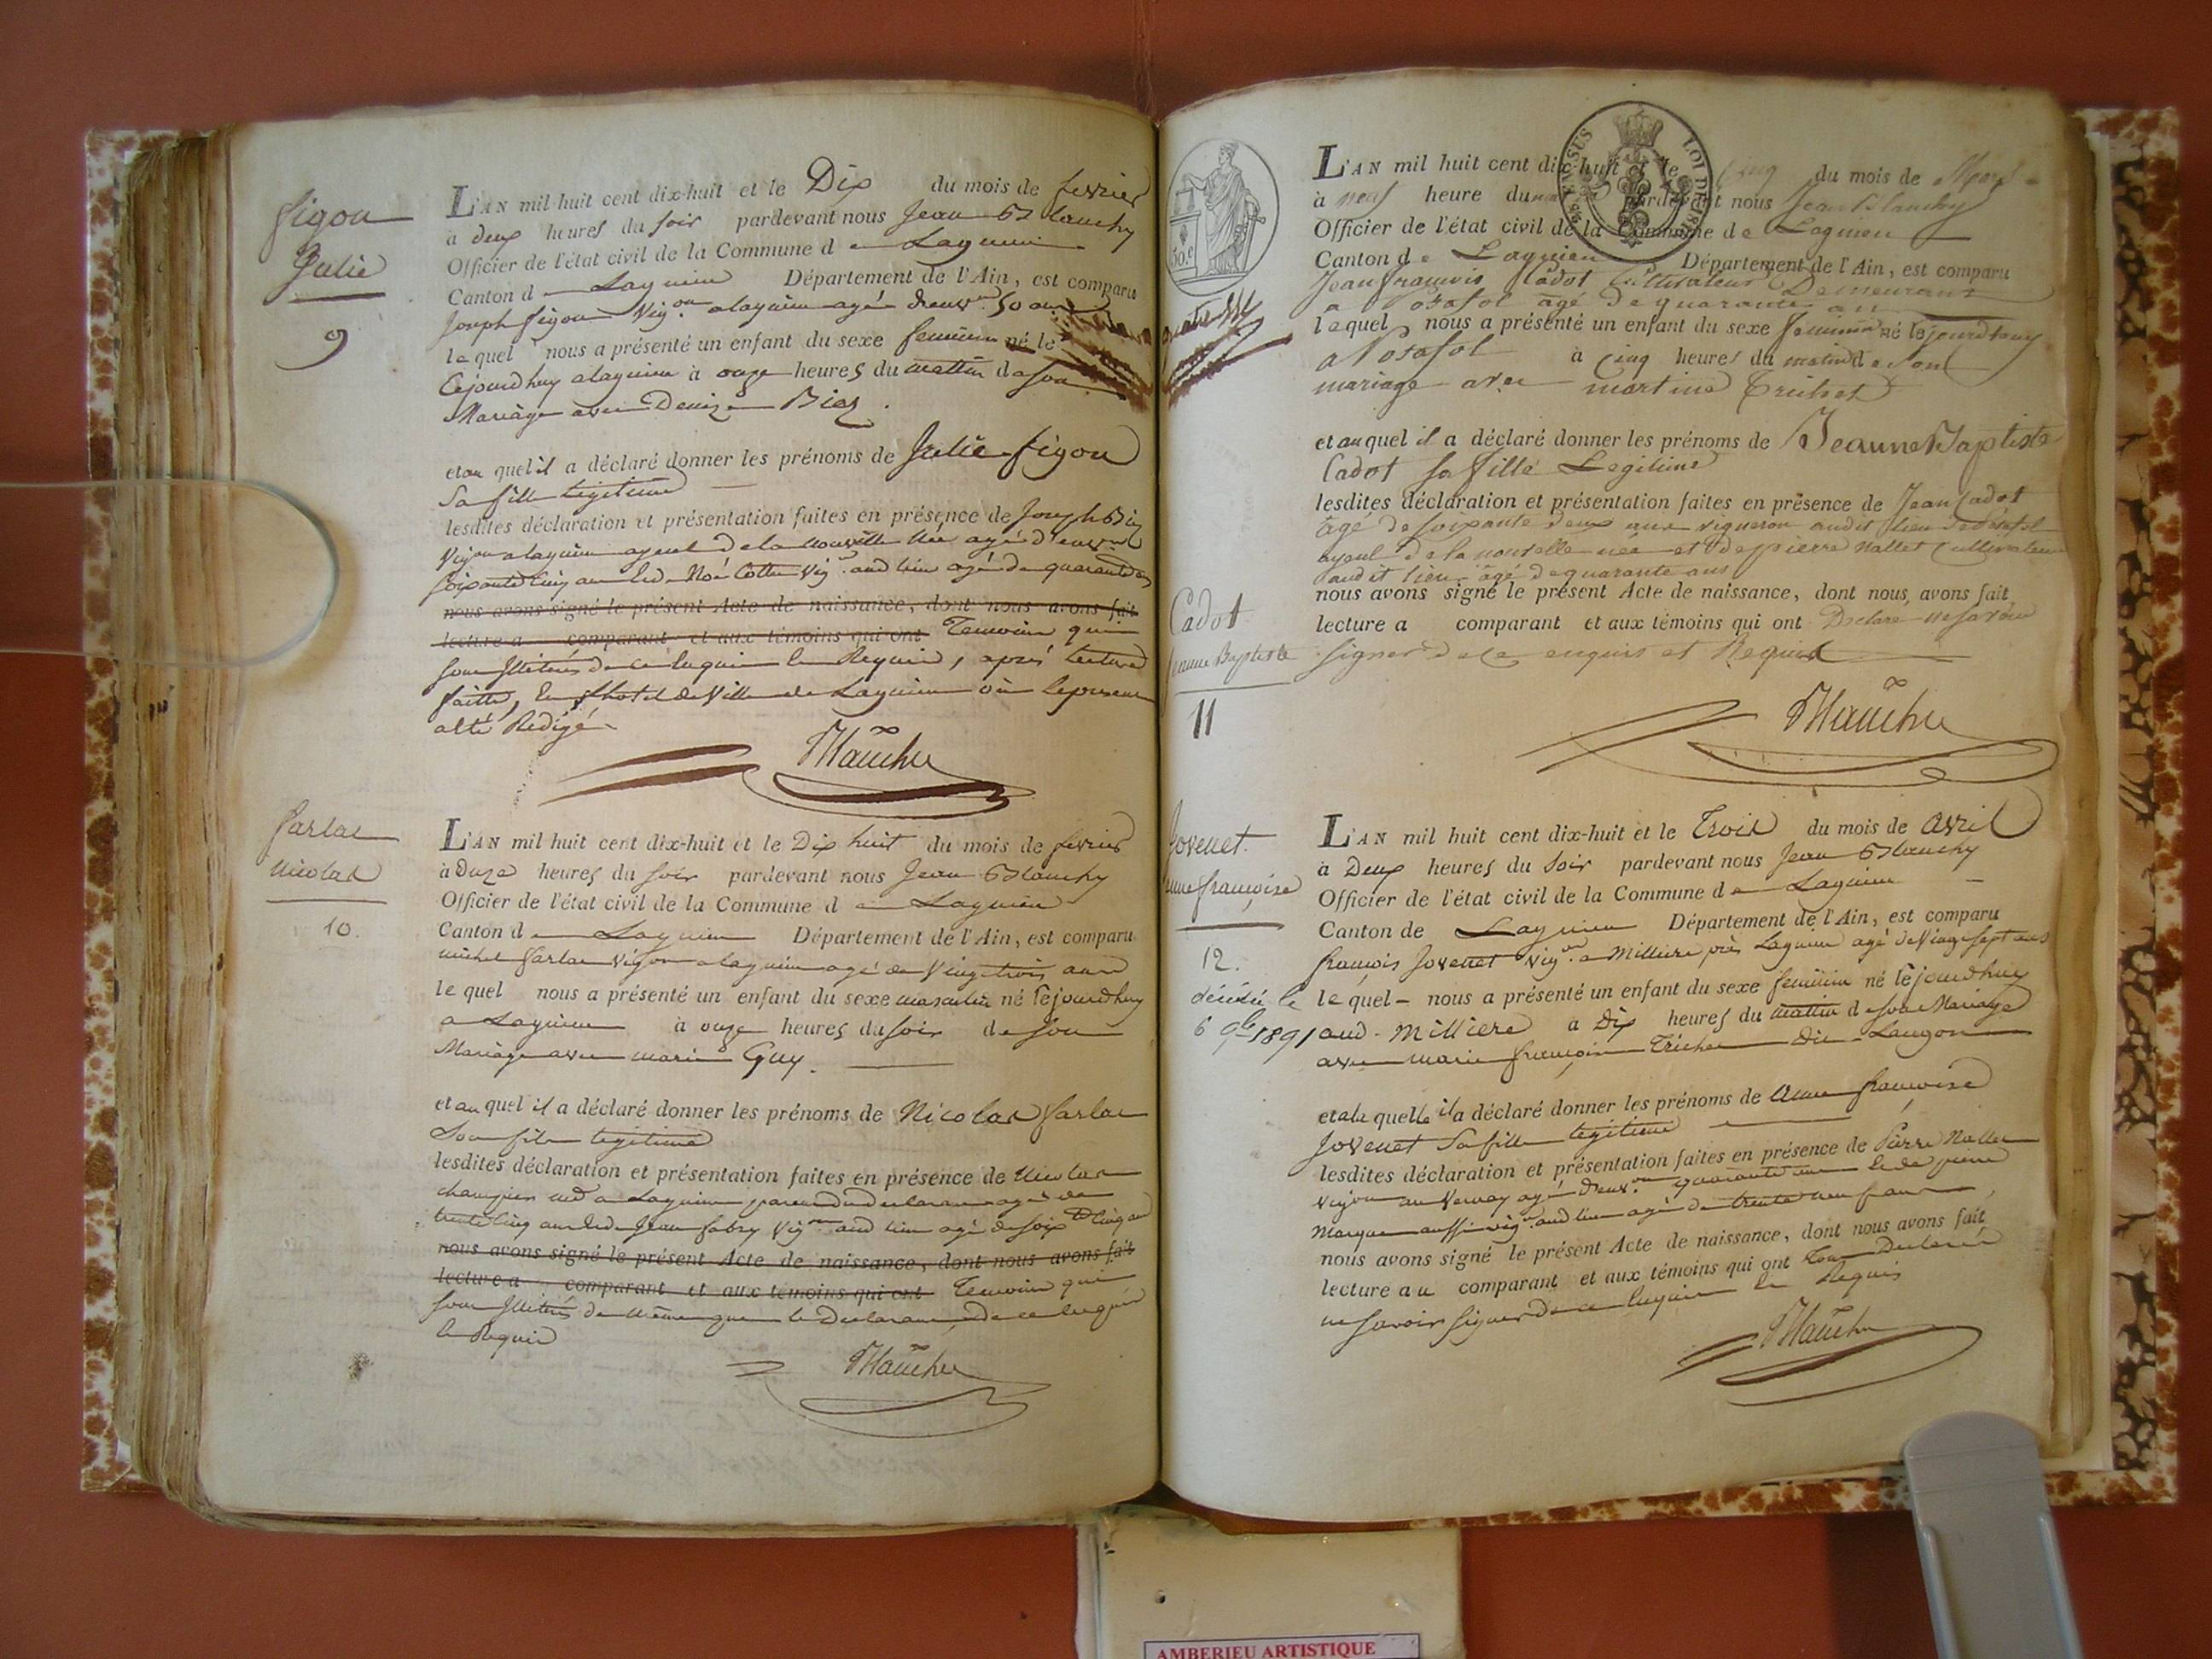 figou
Julie
9
L'AN mil huit cent dix-huit et le Dix du mois de fevrier
à deux heures du soir pardevant nous Jean Blanchy
Officier de l'état civil de la Commune de Lagnieu
Canton de Lagnieu Département de l'Ain, est comparu
Joseph figou Vig.on a lagnieu agé d'env.on 50 ans
lequel nous a présenté un enfant du sexe feminin né le
Cejourdhuy a lagnieu à onze heures du mattin de son
Mariage avec Denize Biez
et au quel il a déclaré donner les prénoms de Julie figou
Sa fille legitime
lesdites déclaration et présentation faites en présence de Joseph Biez
Vig.on a lagnieu ayeul de la nouvelle née agé d'env.on
soixante cinq ans & de Noé Cottin Vig.on aud lieu agé de quarante ans
nous avons signé le présent Acte de naissance, dont nous avons fait
lecture a comparant et aux témoins qui ont Temoins qui
sont Illitérés de ce Enquis & Requis, après lecture
faitte, en l'hotel de Ville de Lagnieu où le present
a été Redigé
Blanchy
farlac
Nicolas
10.
L'AN mil huit cent dix-huit et le Dix huit du mois de fevrier
à Duze heures du soir pardevant nous Jean Blanchy
Officier de l'état civil de la Commune de Lagnieu
Canton de Lagnieu Département de l'Ain, est comparu
michel farlac Vig.on a lagnieu agé de Vingt trois ans
lequel nous a présenté un enfant du sexe masculin né cejourdhuy
a Lagnieu à onze heures du soir de son
Mariage avec marie Guy.
et au quel il a déclaré donner les prénoms de Nicolas farlac
Son fils legitime
lesdites déclaration et présentation faites en présence de Nicolas
a Lagnieu parent du declarant agé de
trente cinq ans & de Jean fabry Vig.on aud lieu agé de soixte cinq ans
nous avons signé le présent Acte de naissance, dont nous avons fait
lecture a comparant et aux témoins qui ont Temoins qui
sont Illitérés de même que le Declarant, de ce enquis
& Requis
Blanchy
50.c
Cadot
Jeanne Baptiste
11
L'AN mil huit cent dix-huit et le Cinq du mois de Mars
à neuf heure du pardevant nous Jean Blanchy
Officier de l'état civil de la Commune de Lagnieu
Canton de Lagnieu Département de l'Ain, est comparu
Jean françois Cadot Cultivateur Demeurant
a Posafol âgé de quarante ans
lequel nous a présenté un enfant du sexe feminin né cejourdhuy
a Posafol à Cinq heures du matin de son
mariage avec martine Truchet
et au quel il a déclaré donner les prénoms de Jeanne Baptiste
Cadot sa fille Legitime
lesdites déclaration et présentation faites en présence de Jean Cadot
âgé de soixante deux ans vigneron audit lieu de Posafol
ayeul de la nouvelle née et de pierre Nallet Cultivateur
audit lieu âgé de quarante ans
nous avons signé le présent Acte de naissance, dont nous avons fait
lecture a comparant et aux témoins qui ont Declaré ne savoir
signer de ce enquis et Requis
Blanchy
Jovenet
anne françoise
12.
décédée le
6 9bre 1891
L'AN mil huit cent dix-huit et le Trois du mois de Avril
à Deux heures du Soir pardevant nous Jean Blanchy
Officier de l'état civil de la Commune de Lagnieu
Canton de Lagnieu Département de l'Ain, est comparu
françois Jovenet Vig.on a Milliere près Lagnieu agé de Vingt sept ans
lequel nous a présenté un enfant du sexe feminin né cejourdhuy
aud. Milliere à Dix heures du mattin de son Mariage
avec marie françoise Trichon dit Laugon
et a la quelle il a déclaré donner les prénoms de Anne françoise
Jovenet Sa fille legitime
lesdites déclaration et présentation faites en présence de Pierre Nallet
Vig.on au Vernay agé d'env.on quarante ans & de pierre
aussi vig.on aud lieu agé de trente
nous avons signé le présent Acte de naissance, dont nous avons fait
lecture au comparant et aux témoins qui ont tous Declaré
ne savoir signer de ce Enquis & Requis
Blanchy
AMBERIEU ARTISTIQUE